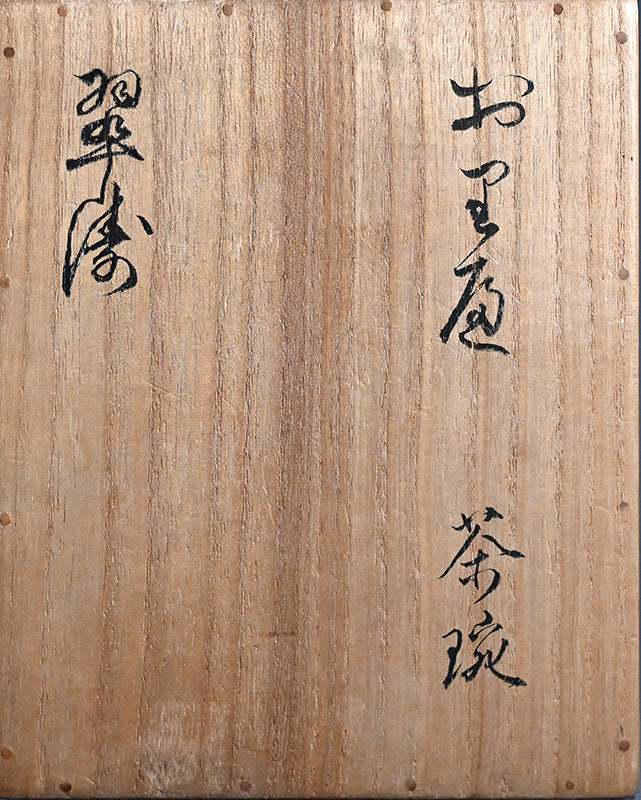 お里遍 茶碗
翠濤